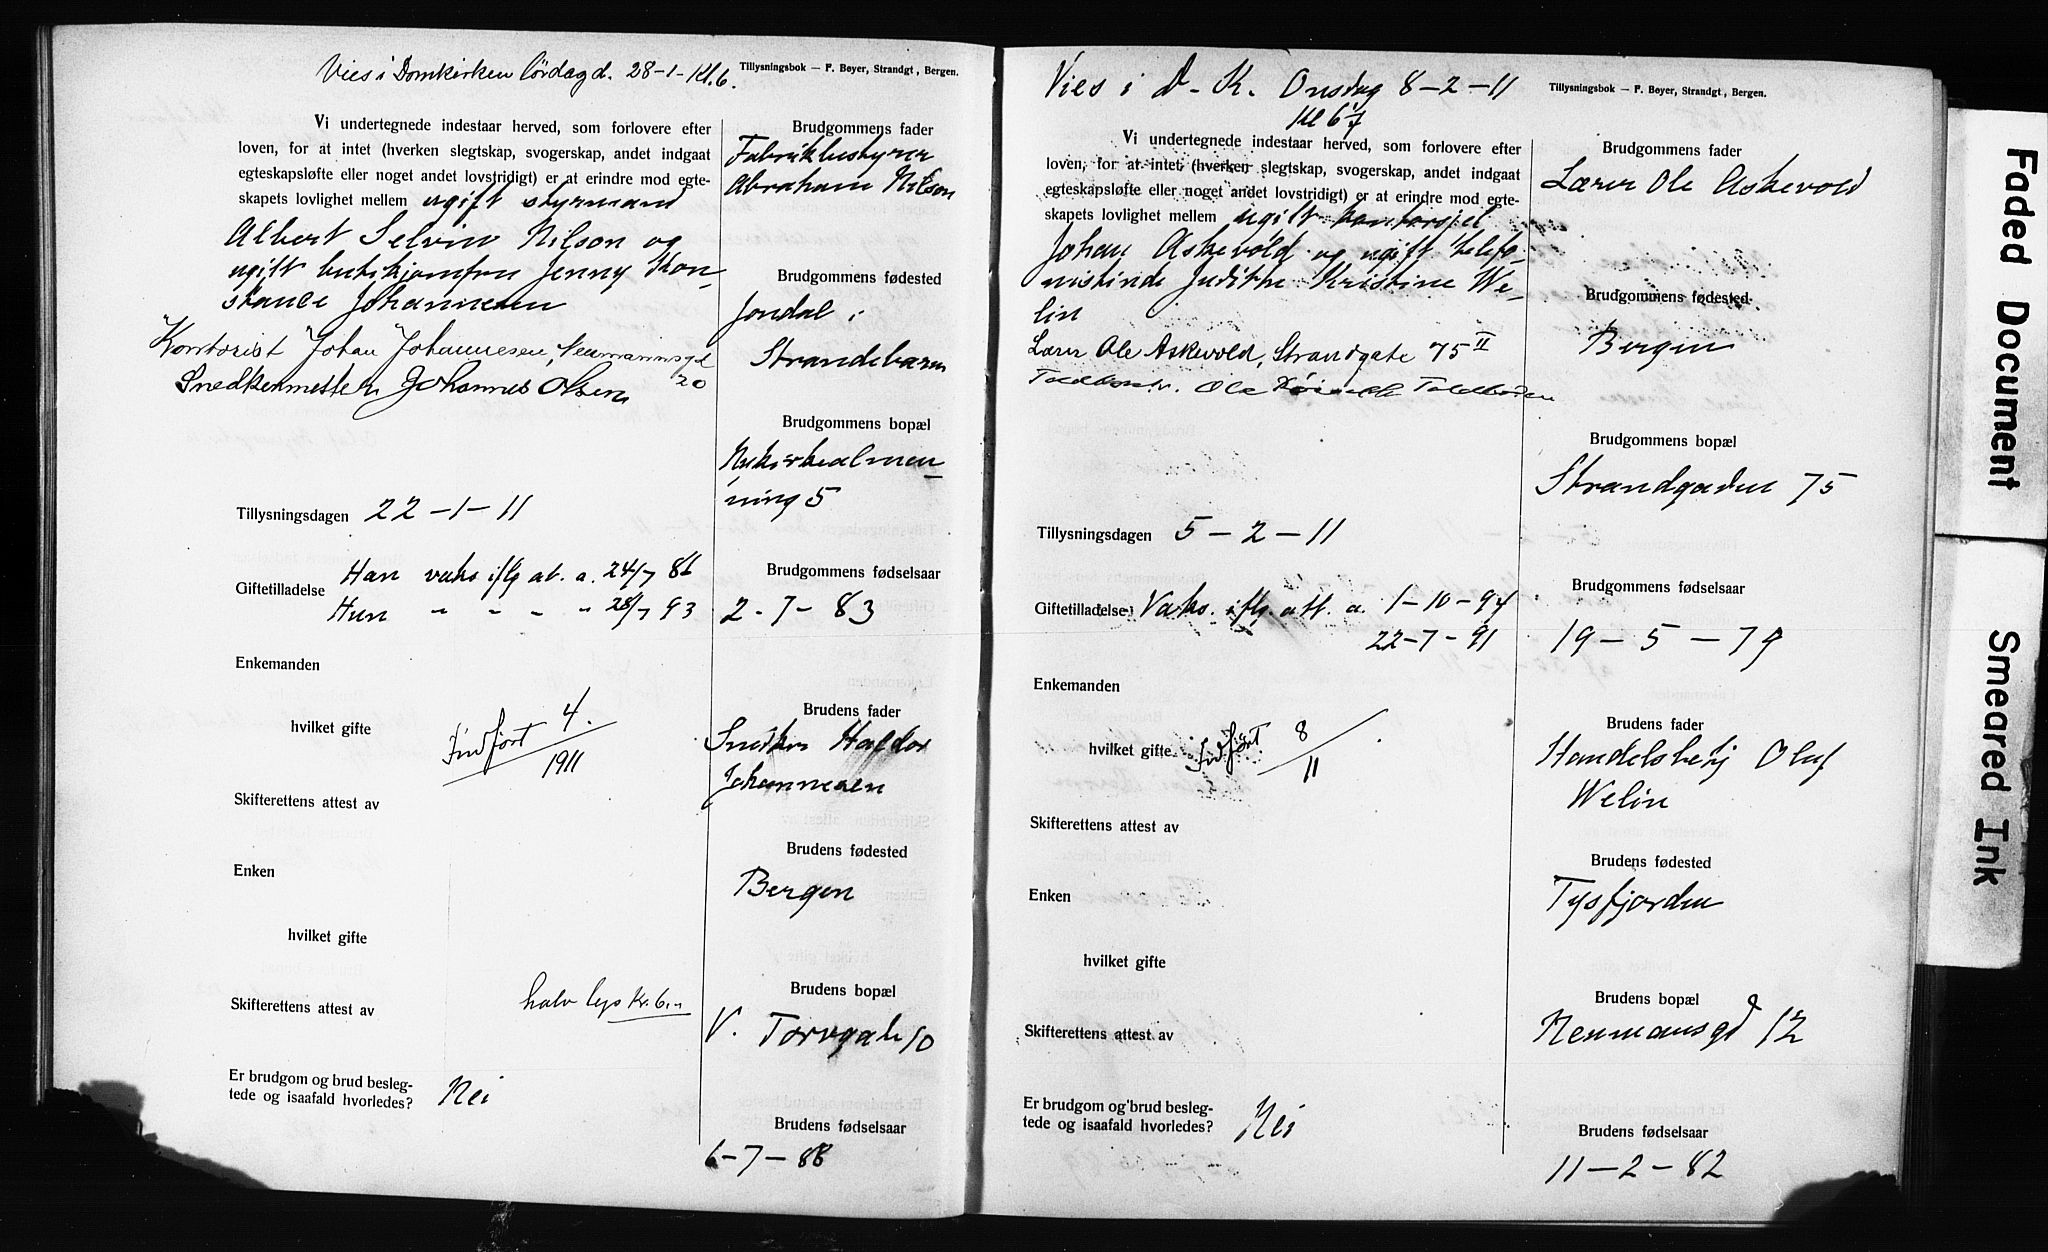 Vies i Domkirken Lørdag d. 28-1- Kl. 6.
Tillysningsbok — F. Beyer, Strandgt, Bergen.
Vi undertegnede indestaar herved, som forlovere efter
loven, for at intet (hverken slegtskap, svogerskap, andet indgaat
egteskapsløfte eller noget andet lovstridigt) er at erindre mod egte-
skapets lovlighet mellem ugift styrmand
Albert Selvin Nilson og
ugift butikjomfru Jenny Kon-
stance Johannesen
Kontorist Johan Johannesen, Neumannsgd
20
Snedkermester Johannes Olsen
Tillysningsdagen 22-1-11
Giftetilladelse Han vaks iflg at. a. 24/7 81
Hun " " " " 28/7 93
Enkemanden
hvilket gifte
Indført 4.
1911
Skifterettens attest av
Enken
hvilket gifte
Skifterettens attest av
halv lys Kr. 6.-
Er brudgom og brud besleg-
tede og isaafald hvorledes? Nei
Brudgommens fader
Fabrikbestyrer
Abraham Nilson
Brudgommens fødested
Jondal i
Strandebarm
Brudgommens bopæl
Nykirkealmen-
ning 5
Brudgommens fødselsaar
2-7-83
Brudens fader
Snedker Haldor
Johannesen
Brudens fødested
Bergen
Brudens bopæl
V. Torvgate 10
Brudens fødselsaar
6-7-88
Vies i D.K. Onsdag 8-2-11
Kl 6
Tillysningsbok — F. Beyer, Strandgt, Bergen.
Vi undertegnede indestaar herved, som forlovere efter
loven, for at intet (hverken slegtskap, svogerskap, andet indgaat
egteskapsløfte eller noget andet lovstridigt) er at erindre mod egte-
skapets lovlighet mellem ugift
Johan Askevold og ugift telefo-
nistinde Judithe Kristine We-
lin
Lærer Ole Askevold, Strandgate 75 II
Ole Toldboden
Tillysningsdagen 5-2-11
Giftetilladelse Vaks. iflg. att. a. 1-10-94
22-7-91
Enkemanden
hvilket gifte Indført 8
11
Skifterettens attest av
Enken
hvilket gifte
Skifterettens attest av
Er brudgom og brud besleg-
tede og isaafald hvorledes? Nei
Brudgommens fader
Lærer Ole Askevold
Brudgommens fødested
Bergen
Brudgommens bopæl
Strandgaden 75
Brudgommens fødselsaar
19-5-79
Brudens fader
Handelsbetj Oluf
Welin
Brudens fødested
Tysfjorden
Brudens bopæl
Neumansgd 12
Brudens fødselsaar
11-2-82
Faded Document
Smeared Ink